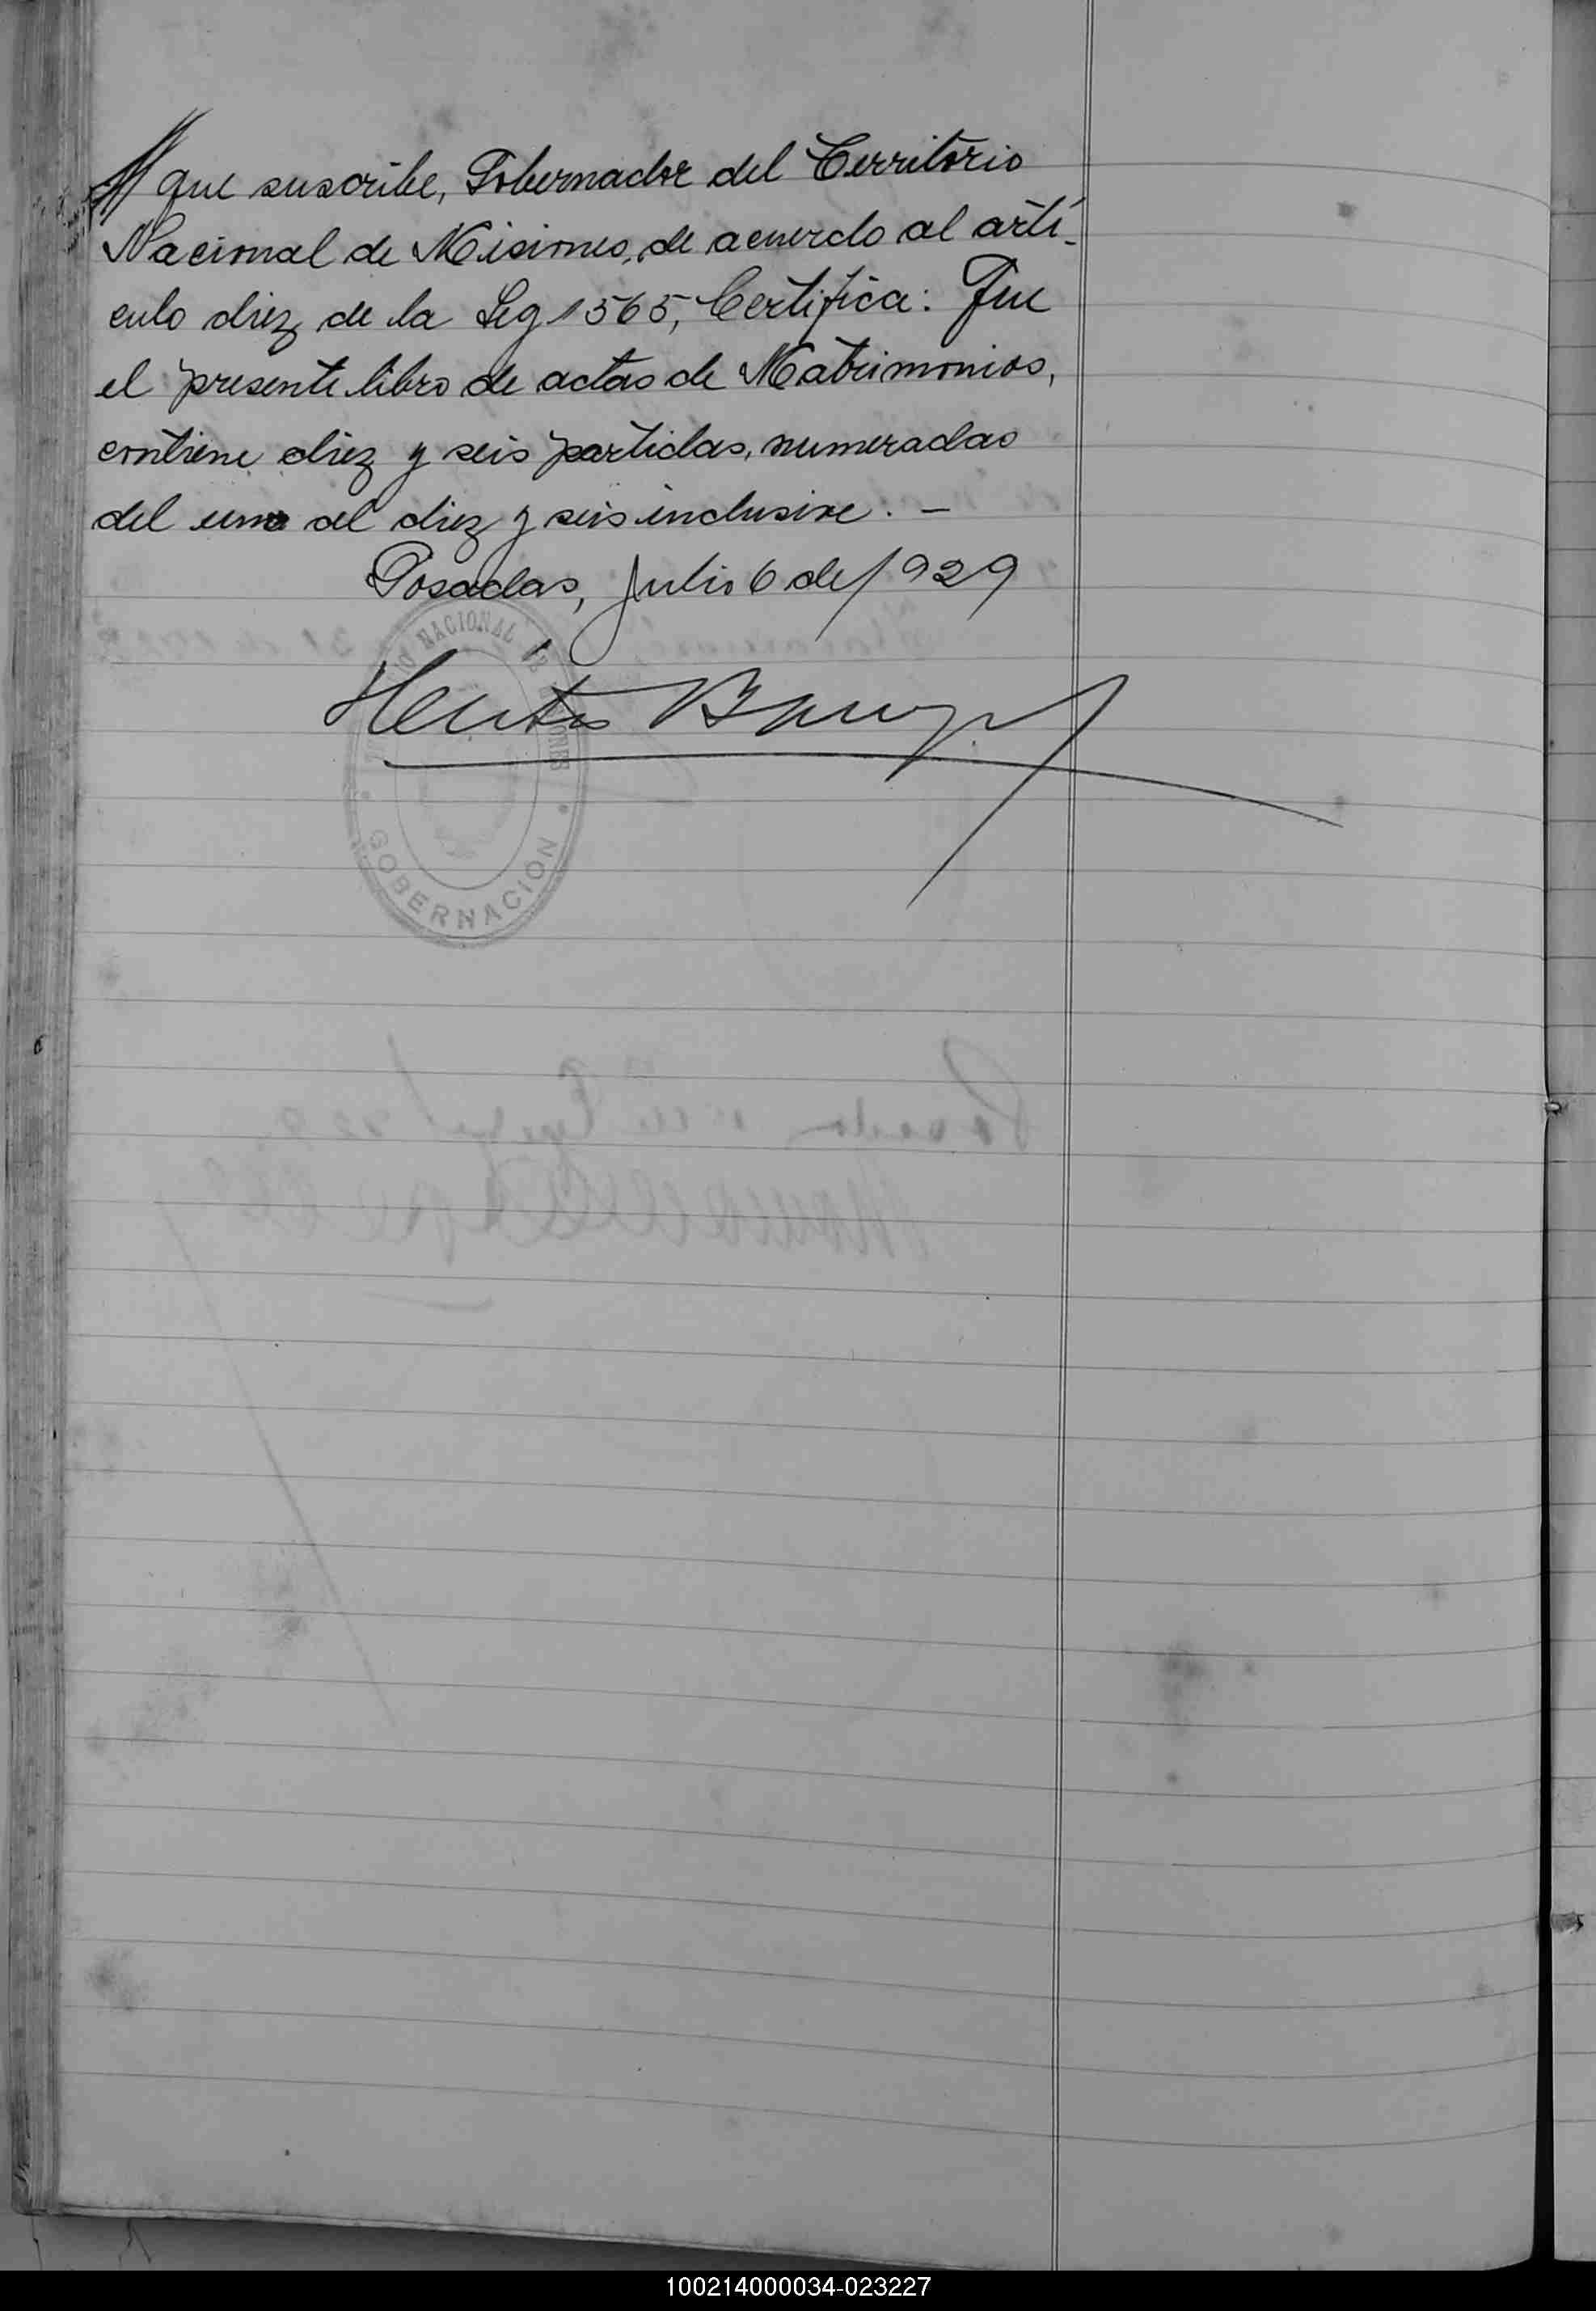 El que suscribe, Gobernador del Territorio
Nacional de Misiones, de acuerdo al artí-
culo diez de la Ley 1565, Certifica: Que
el presente libro de actas de Matrimonios,
contiene diez y seis partidas, numeradas
del uno al diez y seis inclusive. –
Posadas, Julio 6 de 1929
NACIONAL DE MISIONES
GOBERNACION
100214000034-023227